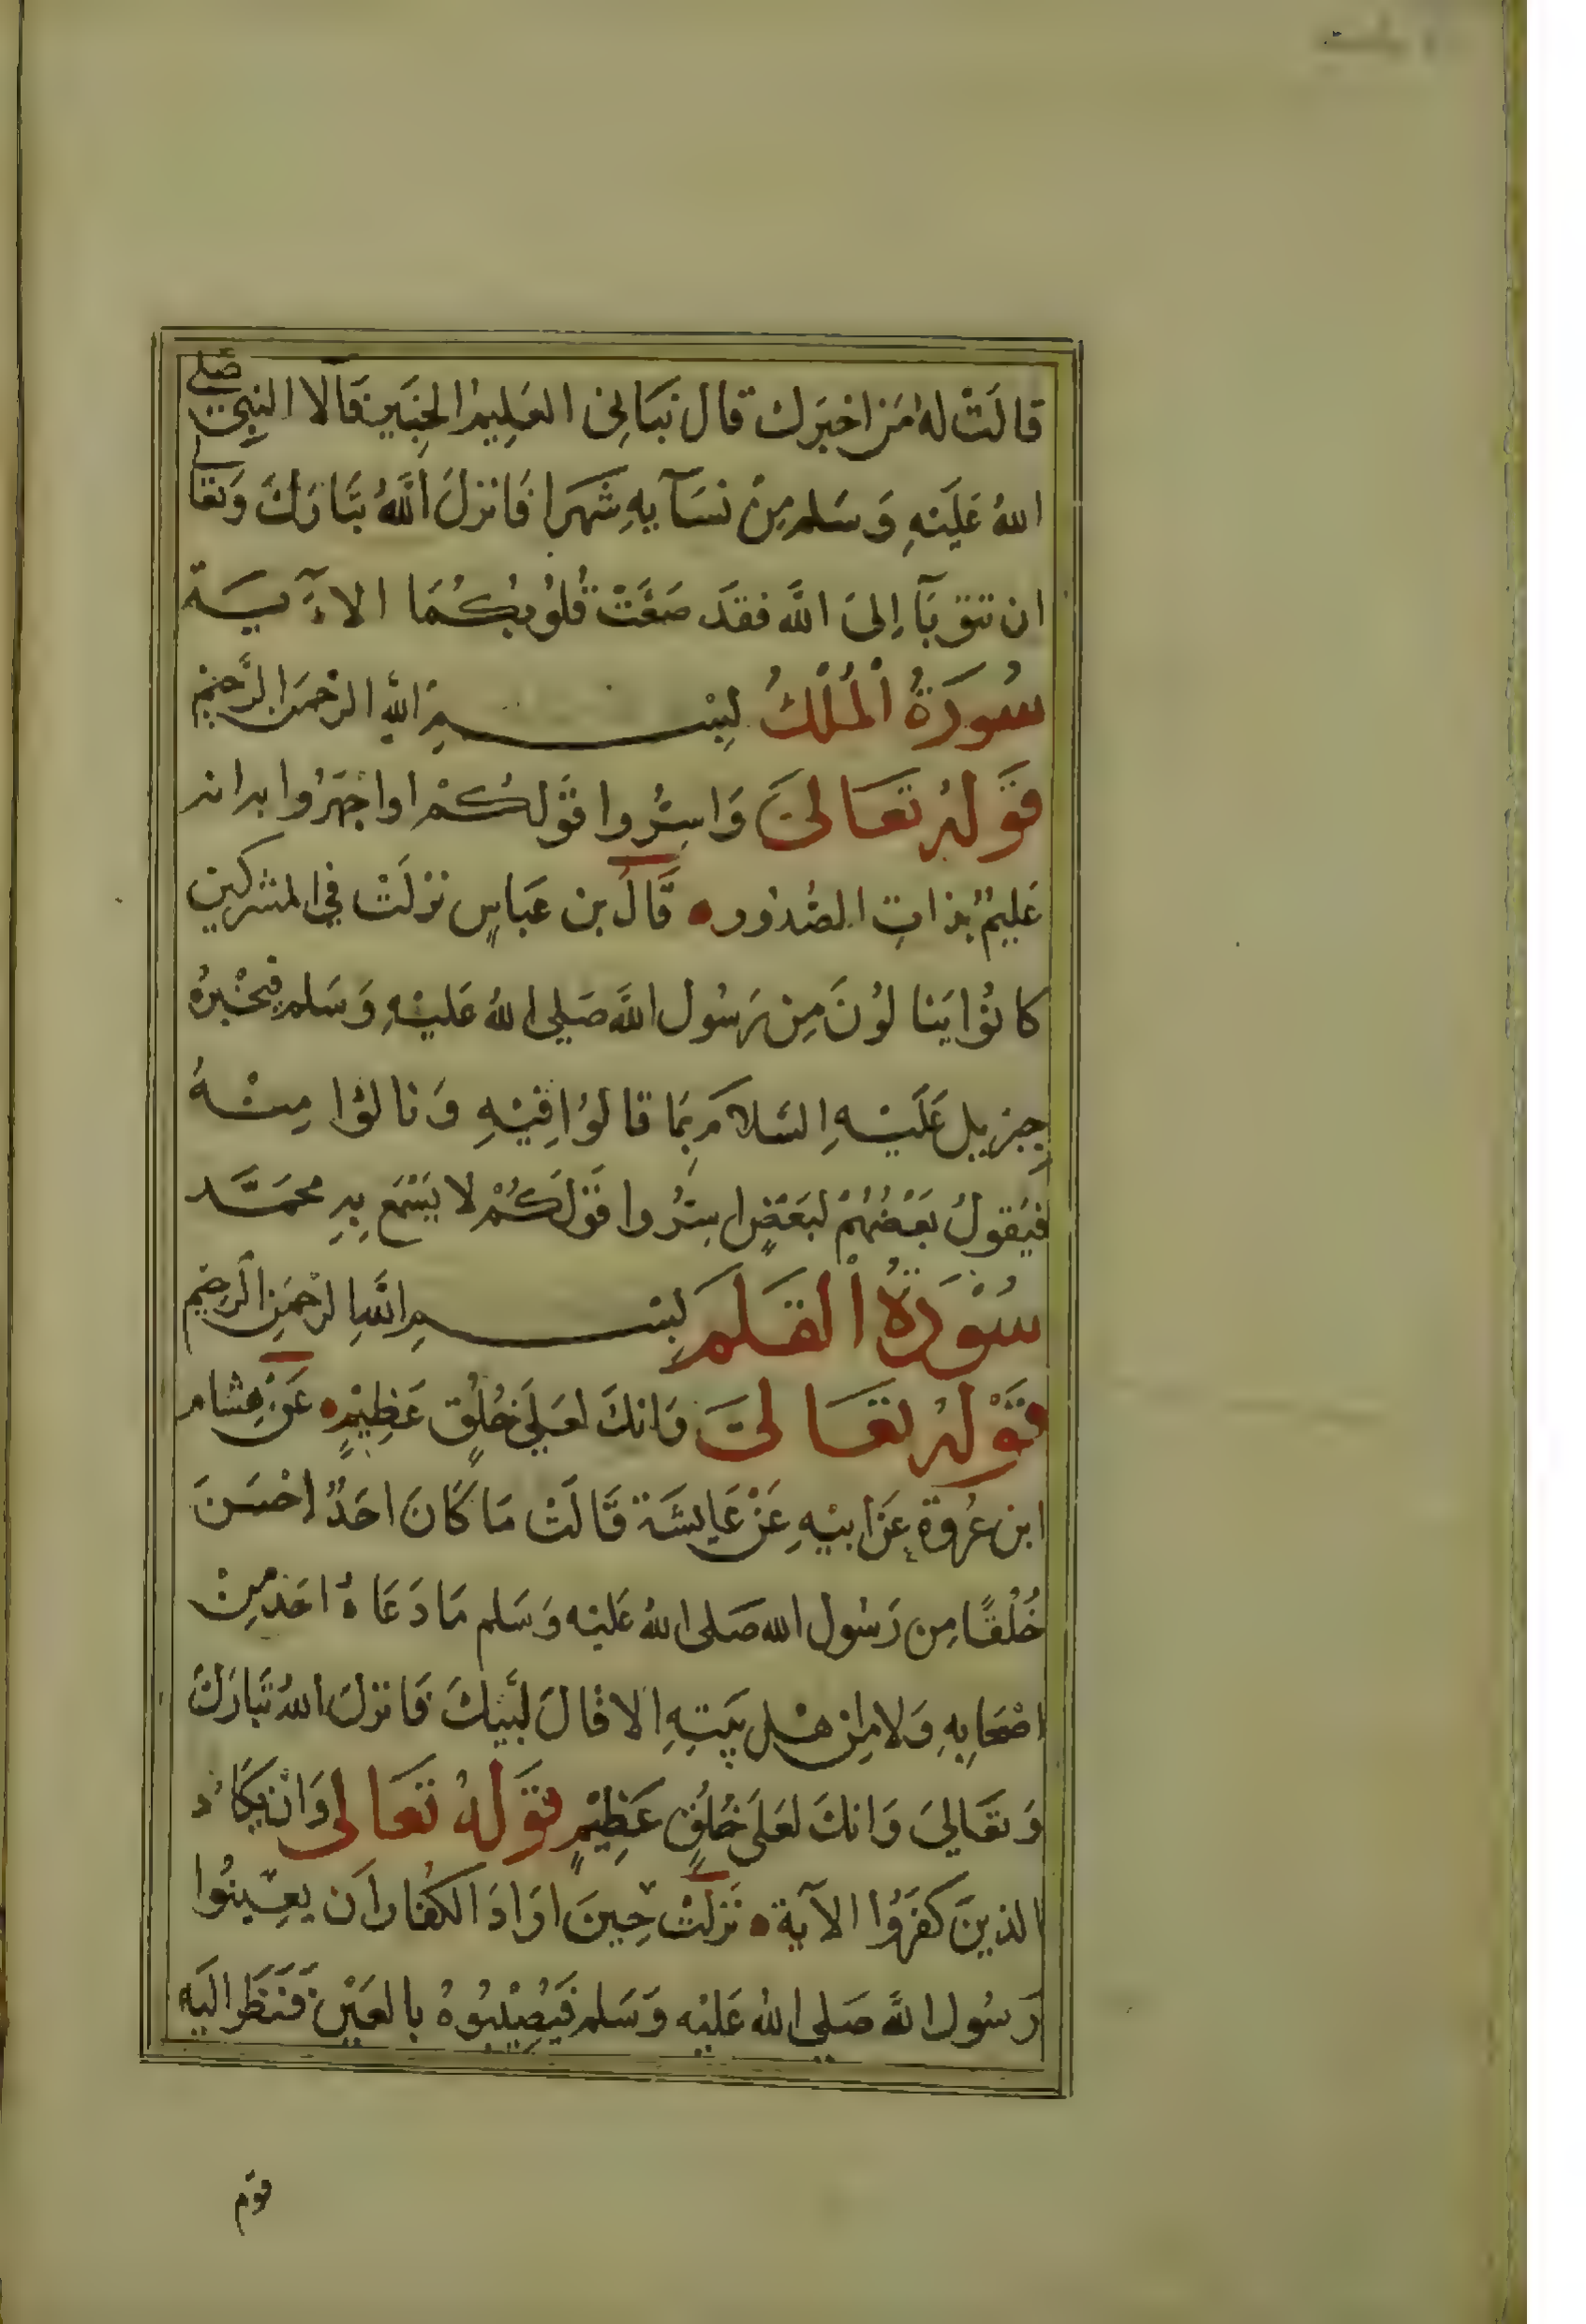 قالَتْ لهُ مَن اخبَرَك قال نبَانِي العَلِيمُ الخَبَير فَآلا النبِيّ صَلى
اللهُ عَلَيْهِ وَسَلم مِنْ نسَآيهِ شهرَا فَانزلَ اللهُ تبَارَكَ وَتعَالى
ان تتوبَآ اِلىَ اللَّه فقدَ صَغَتْ قُلوُبكُمَا الآيَة
سُورَةُ الْمُلْكُ بِسْمِ اللهِ الرَّحْمَنِ الرَّحِيْمِ
قَولهُ تعَالىَ وَاسِرُّوا قَولكُمْ اواجْهَرُوا به انه
عَلِيمٌ بذاتِ الصُدُورِ قَالَ بن عَباسٍ نزلَتْ في المشركين
كانوُا يَنالوُنَ مِن رَسُول اللهَ صَلى اللهُ عَليْهِ وَسَلم فيخْبرهُ
جبزيل عَلَيْهِ السَلامَ بمَا قالوُا فِيْهِ وَنالوُا مِنْهُ
فيَقولُ بَعْضُهُمْ لبَعَضٍ اسِرُّوا قَوْلَكُمْ لا يَسْمَع بِهِ محمَّد
سُوْرَةُ الْقَلَمَ بِسْمِ اللَّهِ الرَّحْمَنِ الرَّحِيْمِ
قَوْلهُ تعَالىَ وَانكَ لعَلى خُلُقٍ عَظِيْمٍ عَنْ هِشام
ابن عُروَة عَنْ ابيْهِ عَنْ عَايشَة قَالَتْ مَا كَانَ احَدٌ احْسَنَ
خُلْقًا مِن رَسُول الله صَلى اللهُ عَليْه وَسَلم مَا دَعَاهُ احَد مِنْ
اصْحَابِهِ وَلا مِن هْل بَيتِهِ الا قَالَ لَبَّيكَ فَانزلَ اللهُ تبَارَكَ
وَتعَالىَ وَانكَ لعَلى خُلُقٍ عَظِيْمٍ قَولهُ تعَالى وَانْ يَكَادُ
الذينَ كَفَرُوا الآيَة نَزلَتْ حِينَ ارَادَ الكفار اَن يعِيْنُوا
رَسُول اللهَ صَلى اللهُ عَليْه وَسَلم فَيُصِيْبُوهُ بالعَيْن فَنَظَرَ اليَه
قوم